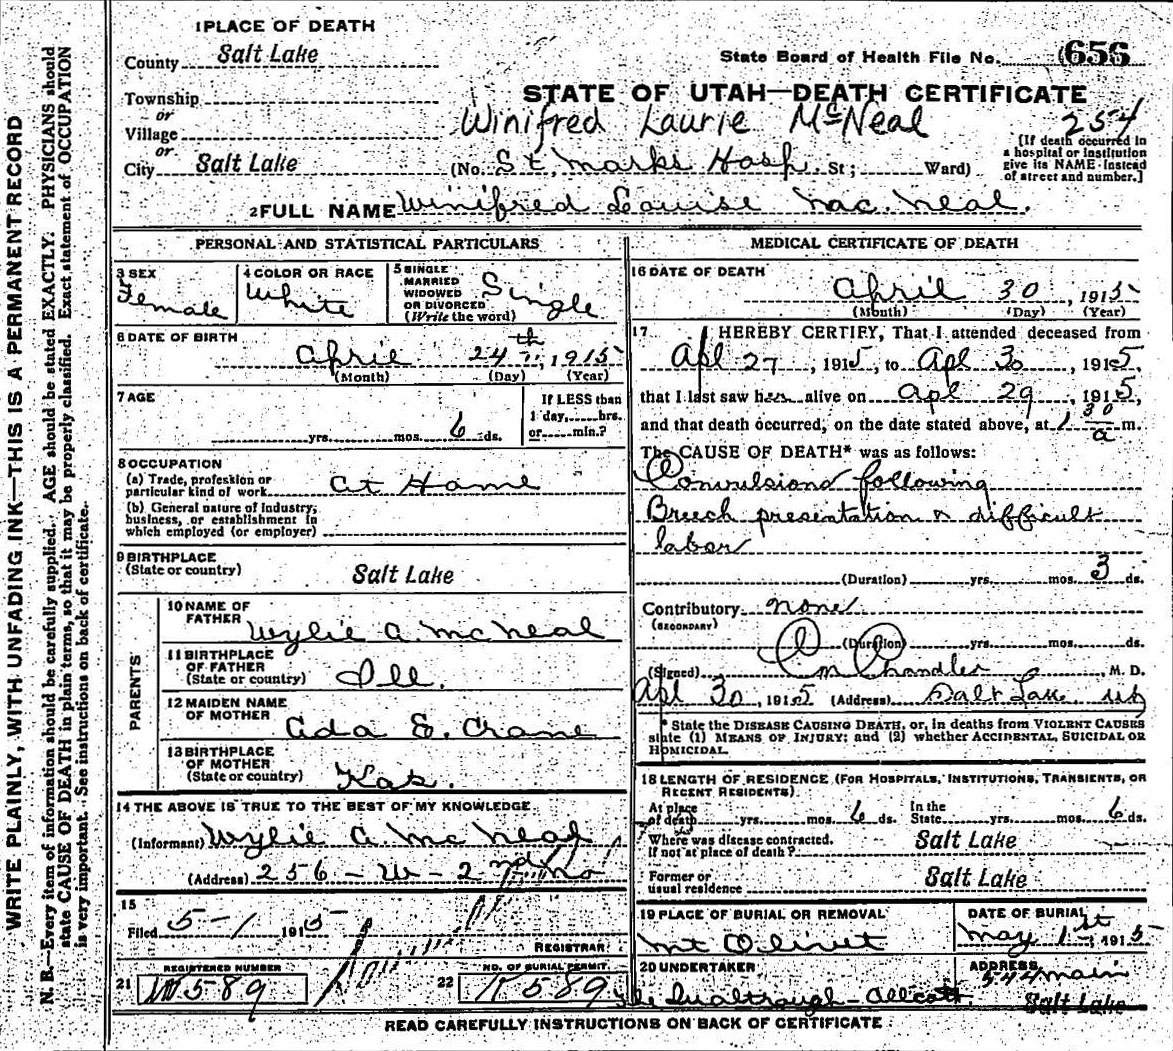 WRITE PLAINLY, WITH UNFADING INK—THIS IS A PERMANENT RECORD
N. B.—Every item of information should be carefully supplied. AGE should be stated EXACTLY. PHYSICIANS should
state CAUSE OF DEATH in plain terms, so that it may be properly classified. Exact statement of OCCUPATION
is very important. See instructions on back of certificate.
1 PLACE OF DEATH
County Salt Lake
State Board of Health File No. 656
Township
or
STATE OF UTAH—DEATH CERTIFICATE
Village
Winifred Laurie McNeal
254
or
City Salt Lake
(No. St. Marks Hosp. St; Ward)
[If death occurred in
a hospital or institution
give its NAME instead
of street and number.]
2 FULL NAME Winifred Louise Mac. Neal.
PERSONAL AND STATISTICAL PARTICULARS
3 SEX
Female
4 COLOR OR RACE
White
5 SINGLE
MARRIED
WIDOWED
OR DIVORCED
(Write the word)
Single
6 DATE OF BIRTH
April 24th, 1915
(Month) (Day) (Year)
7 AGE
yrs. mos. 6 ds.
If LESS than
1 day, hrs.
or min.?
8 OCCUPATION
(a) Trade, profession or
particular kind of work At Home
(b) General nature of industry,
business, or establishment in
which employed (or employer)
9 BIRTHPLACE
(State or country)
Salt Lake
PARENTS
10 NAME OF
FATHER
Wylie A. McNeal
11 BIRTHPLACE
OF FATHER
(State or country)
Ill.
12 MAIDEN NAME
OF MOTHER
Ada E. Crane
13 BIRTHPLACE
OF MOTHER
(State or country)
Kas.
14 THE ABOVE IS TRUE TO THE BEST OF MY KNOWLEDGE
(Informant) Wylie A. McNeal
(Address) 256 - W - 2nd No
15
Filed 5-1 1915
REGISTRAR
REGISTERED NUMBER
21 589
NO. OF BURIAL PERMIT
22 589
MEDICAL CERTIFICATE OF DEATH
16 DATE OF DEATH
April 30, 1915
(Month) (Day) (Year)
17 I HEREBY CERTIFY, That I attended deceased from
Apl 27, 1915, to Apl 30, 1915,
that I last saw her alive on Apl 29, 1915,
and that death occurred, on the date stated above, at 1 30 a m.
The CAUSE OF DEATH* was as follows:
Convulsions following
Breech presentation & difficult
labor
(Duration) yrs. mos. 3 ds.
Contributory none
(SECONDARY)
(Duration) yrs. mos. ds.
(Signed) Chandler, M. D.
Apl 30, 1915 (Address) Salt Lake, Ut
* State the DISEASE CAUSING DEATH, or, in deaths from VIOLENT CAUSES
state (1) MEANS OF INJURY; and (2) whether ACCIDENTAL, SUICIDAL OR
HOMICIDAL.
18 LENGTH OF RESIDENCE (FOR HOSPITALS, INSTITUTIONS, TRANSIENTS, OR
RECENT RESIDENTS)
At place
of death yrs. mos. 6 ds.
In the
State yrs. mos. 6 ds.
Where was disease contracted.
If not at place of death? Salt Lake
Former or
usual residence Salt Lake
19 PLACE OF BURIAL OR REMOVAL
Mt Olivet
DATE OF BURIAL
May 1st, 1915
20 UNDERTAKER
ADDRESS
544 Main
Salt Lake
READ CAREFULLY INSTRUCTIONS ON BACK OF CERTIFICATE